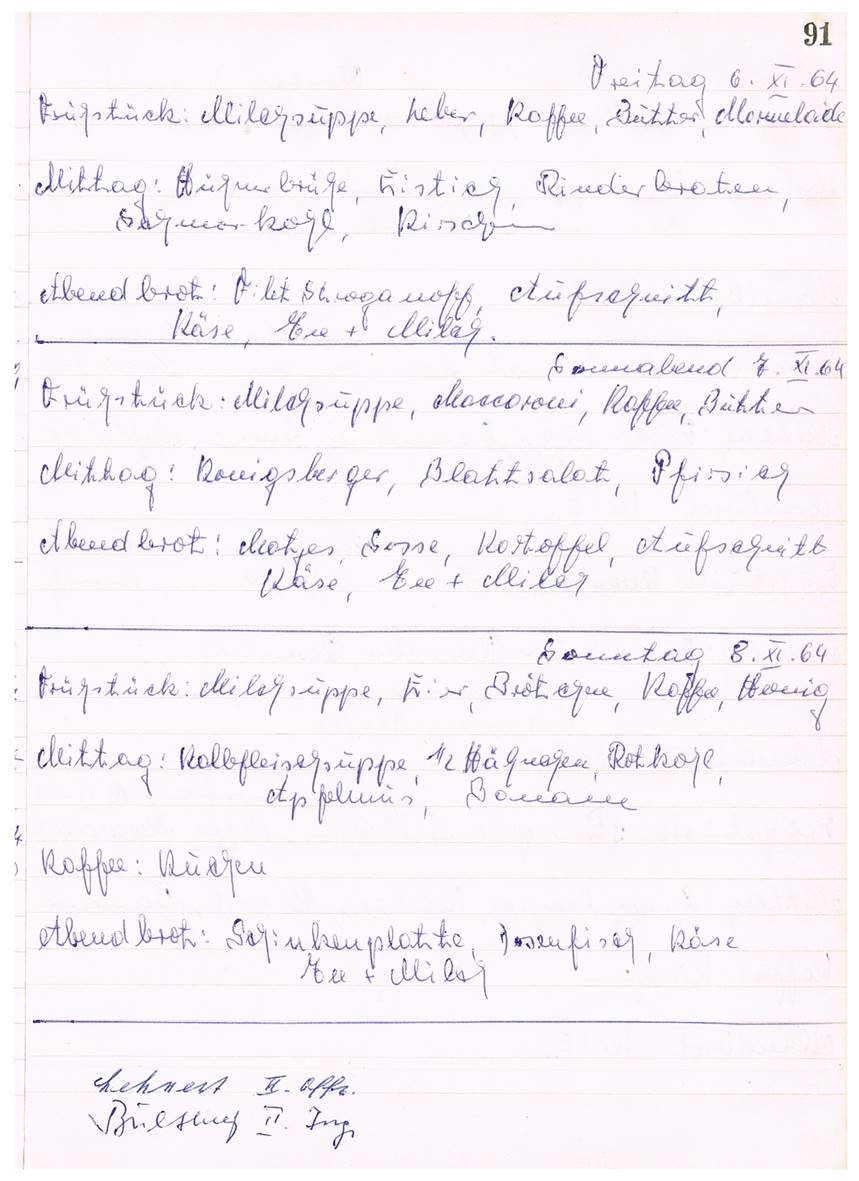 91
Freitag 6. XI. 64
Frühstück: Milchsuppe, Leber, Kaffee, Butter, Marmelade
Mittag: Hühnerbrühe, Eistich, Rinderbraten,
kohl, Kirschen
Abendbrot: Filet Stroganoff, Aufschnitt,
Käse, Tee + Milch.
Sonnabend 7. XI. 64
Frühstück: Milchsuppe, Maccaroni, Kaffee, Butter
Mittag: Königsberger, Blattsalat, Pfirsich
Abendbrot: Matjes, Sosse, Kartoffel, Aufschnitt
Käse, Tee + Milch
Sonntag 8. XI. 64
Frühstück: Milchsuppe, Eier, Brötchen, Kaffee, Honig
Mittag: Kalbfleischsuppe, 1/2 Hähnchen, Rotkohl,
Apfelmus, Banane
Kaffee: Kuchen
Abendbrot: Schinkenplatte, Dosenfisch, Käse
Tee + Milch
Lehnert II. Offz.
II. Ing.